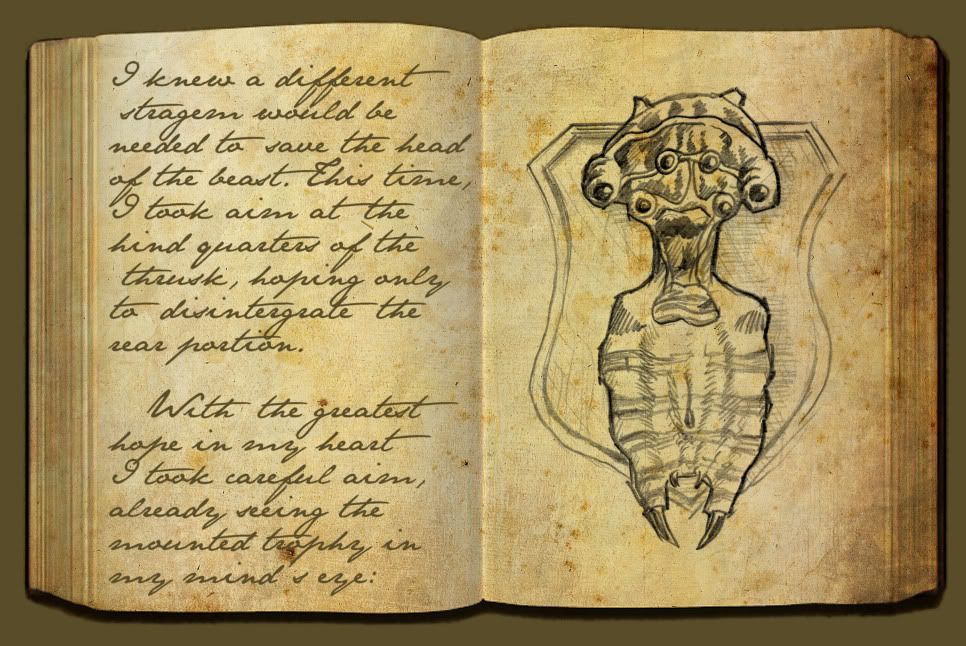 I knew a different
stragem would be
needed to save the head
of the beast. This time,
I took aim at the
hind quarters of the
thrusk, hoping only
to disintergrate the
rear portion.
With the greatest
hope in my heart
I took careful aim,
already seeing the
mounted trophy in
my mind's eye: